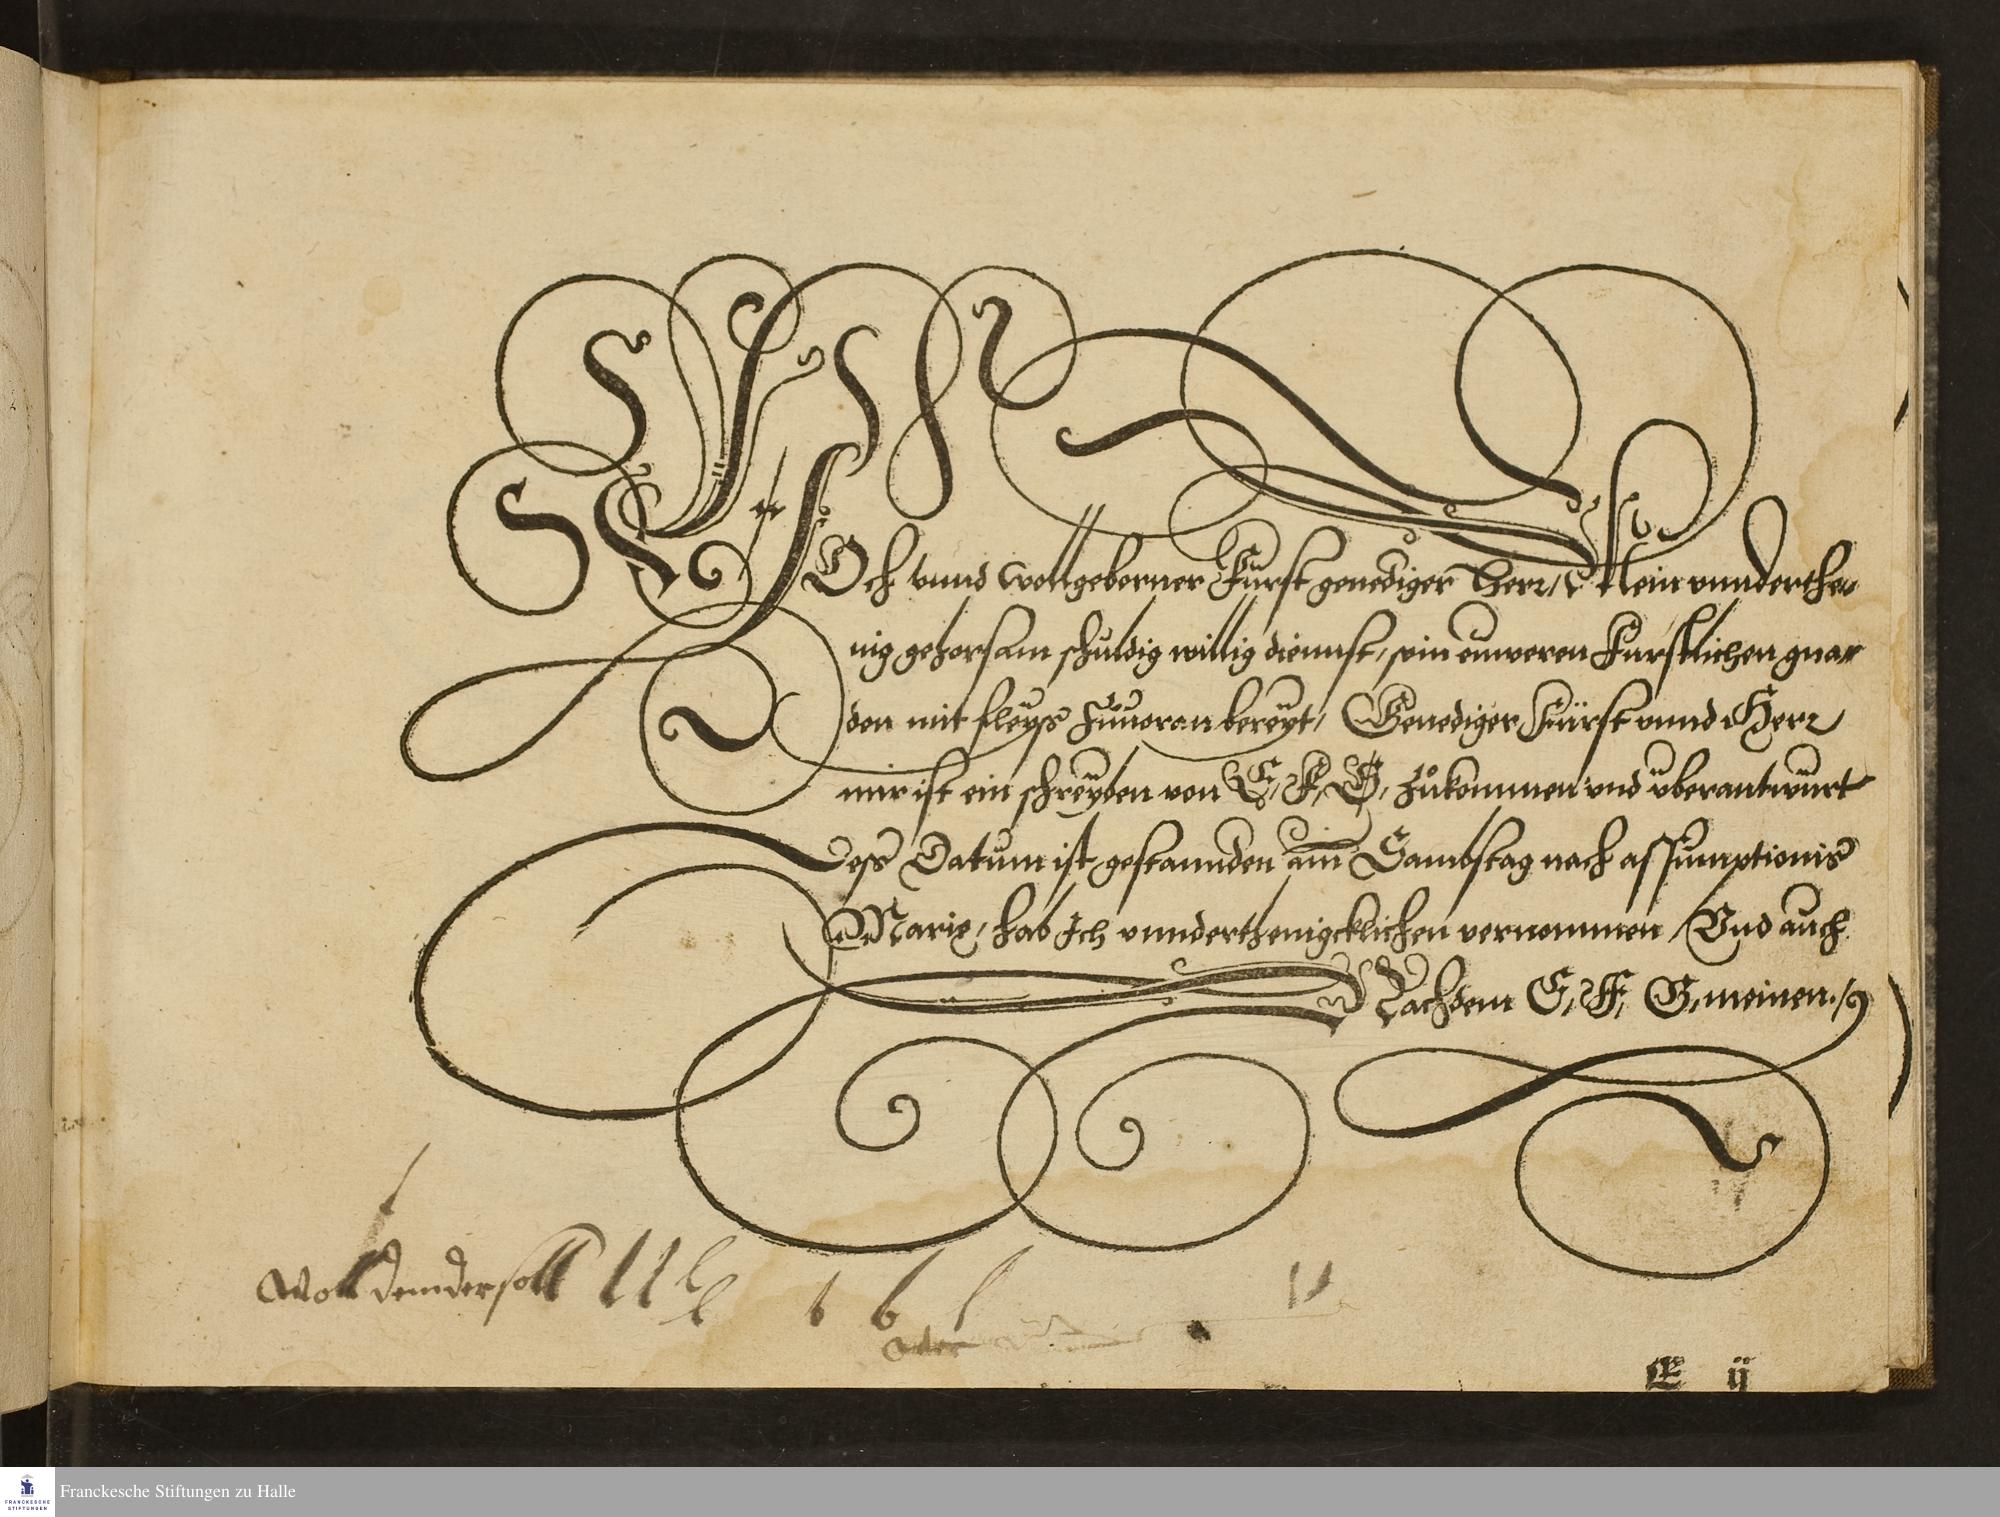 HOch vnnd wollgeborner Fürst genediger Herr, Mein vnnderthe-
nig gehorsam schuldig willig diennst, sein euweren Furstlichen gna-
den mit fleyss zůuoran bereyt, Genediger Fürst vnnd Herr
mir ist ein schreyben von E, F, G, zůkommen vnd vberantwürt
dess Datum ist gestannden am Sambstag nach assumptionis
Marie, hab Ich vnnderthenigcklichen vernommen, Vnd auch
Nachdem E, F, G, meinen.
Woll dem der soll
E ij
Franckesche Stiftungen zu Halle
FRANCKESCHE
STIFTUNGEN